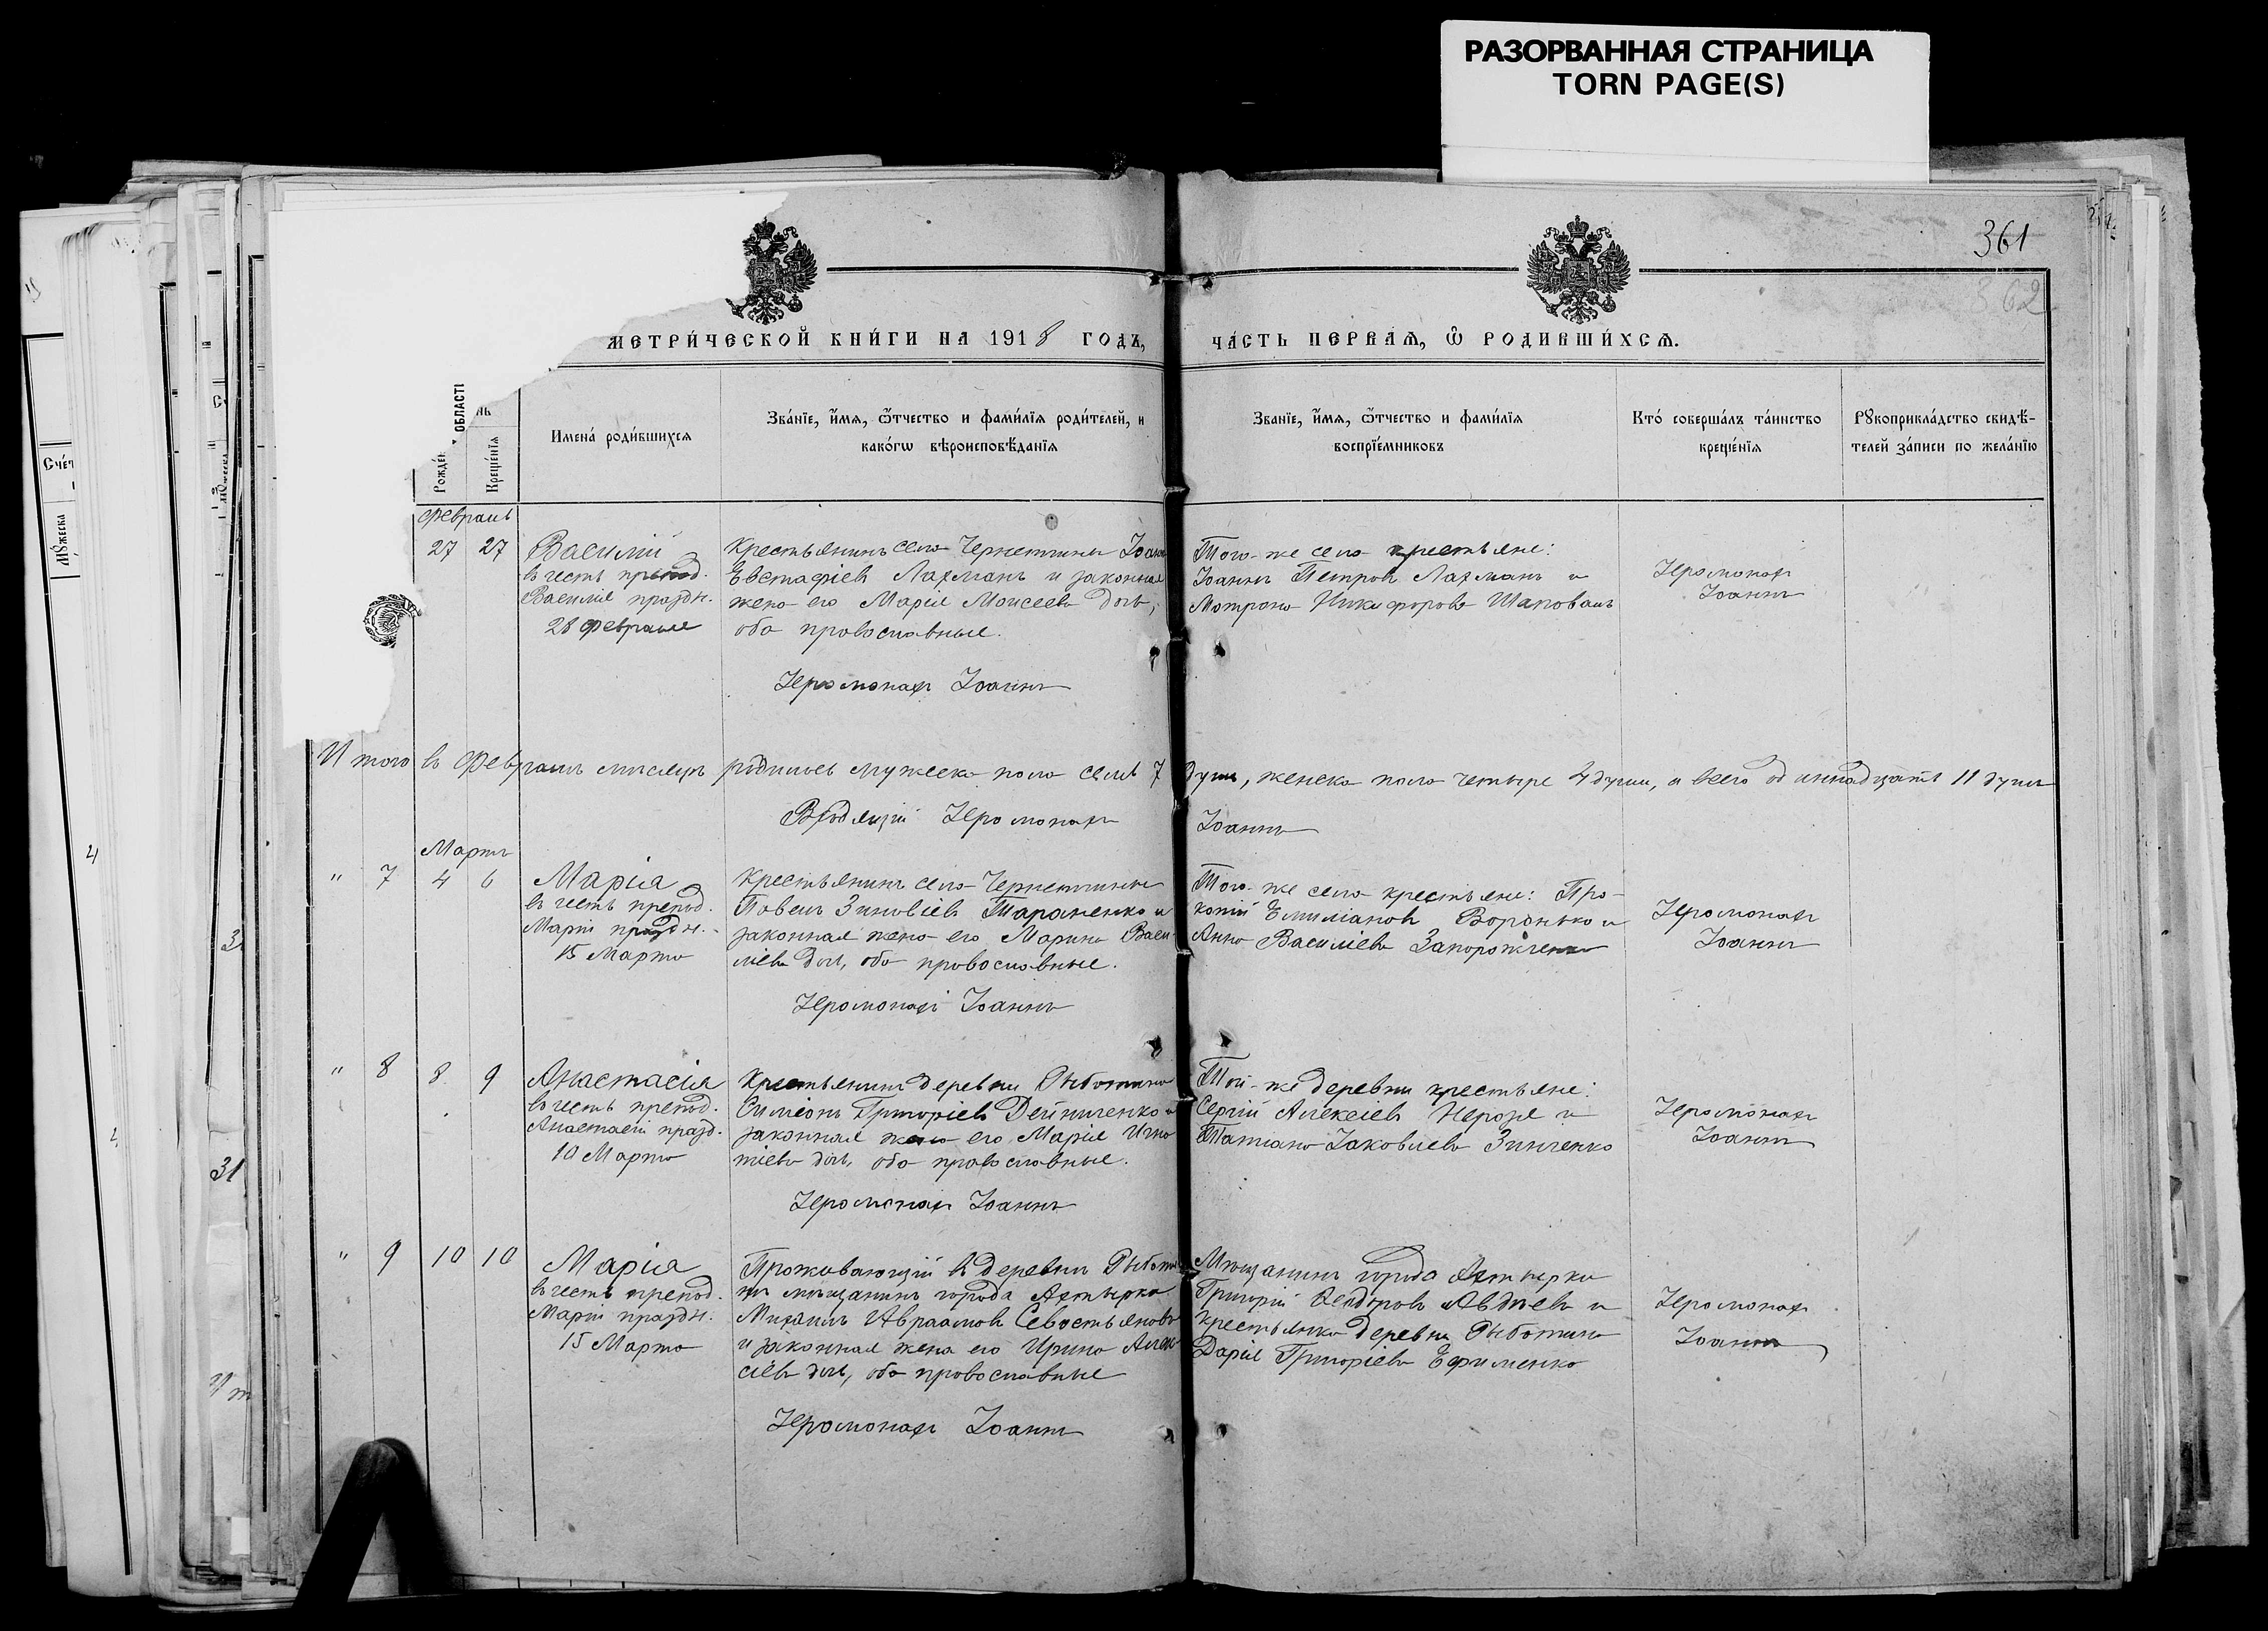 РАЗОРВАННАЯ СТРАНИЦА
TORN PAGE(S)
361
362
МЕТРИ́ЧЕСКОЙ КНИ́ГИ НА 1918 ГОДЪ,
ЧА́СТЬ ПЕРВАѦ, Ѽ РОДИВШИ́ХСѦ.
ОБЛАСТІ
Крещéнїѧ
Имена́ роди́вшихсѧ
Зва́нїе, и́мѧ, ѻ҆́тчество и фами́лїѧ роди́телей, и
како́гѡ вѣроисповѣ́данїѧ
Зва́нїе, и́мѧ, ѻ҆́тчество и фами́лїѧ
воспрїе́мниковъ
Кто́ соверша́лъ та́инство
креще́нїѧ
Рꙋкоприкла́дство свидѣ́-
телей за́писи по жела́нїю
Февраль
27 27
Василій
въ честь препод.
Василія праздн.
28 Февраля
Крестьянинъ села Чернетчины Іоаннъ
Евстафіевъ Лахманъ и законная
жена его Марія Моисеева дочь,
оба православные.
Іеромонахъ Іоаннъ
Того-же села крестьяне:
Іоаннъ Петровъ Лахманъ и
Матрона Никифорова Шаповалъ
Іеромонахъ
Іоаннъ
Итого въ Февралѣ мѣсяцѣ родилось мужеска пола семь 7 душъ, женска пола четыре 4 души, а всего одиннадцать 11 душъ
Владящій Іеромонахъ Іоаннъ
Мартъ
" 7 4 6
Марія
въ честь препод.
Маріи праздн.
15 Марта
Крестьянинъ села Чернетчины
Павелъ Зиновіевъ Тараненко и
законная жена его Марина Васи-
ліева дочь, оба православные.
Іеромонахъ Іоаннъ
Того-же села крестьяне: Про-
копій Емиліановъ Воронько и
Анна Василіева Запорожченко
Іеромонахъ
Іоаннъ
" 8 8 9
Анастасія
въ честь препод.
Анастасіи празд.
10 Марта
Крестьянинъ деревни Рыботина
Симеонъ Григоріевъ Дейниченко и
законная жена его Марія Игна
тіева дочь, оба православные.
Іеромонахъ Іоаннъ
Той-же деревни крестьяне:
Сергій Алексіевъ Нероня и
Татіана Іаковлева Зинченко
Іеромонахъ
Іоаннъ
" 9 10 10
Марія
въ честь препод.
Маріи праздн.
15 Марта
Проживающій въ деревнѣ Рыботи
нѣ мѣщанинъ города Ахтырка
Михаилъ Авраамовъ Севостьяновъ
и законная жена его Ирина Алек
сіева дочь, оба православные
Іеромонахъ Іоаннъ
Мѣщанинъ города Ахтырки
Григорій Ѳеодоровъ Авдѣевъ и
крестьянка деревни Рыботина
Дарія Григоріева Ефименко
Іеромонахъ
Іоаннъ
31
4